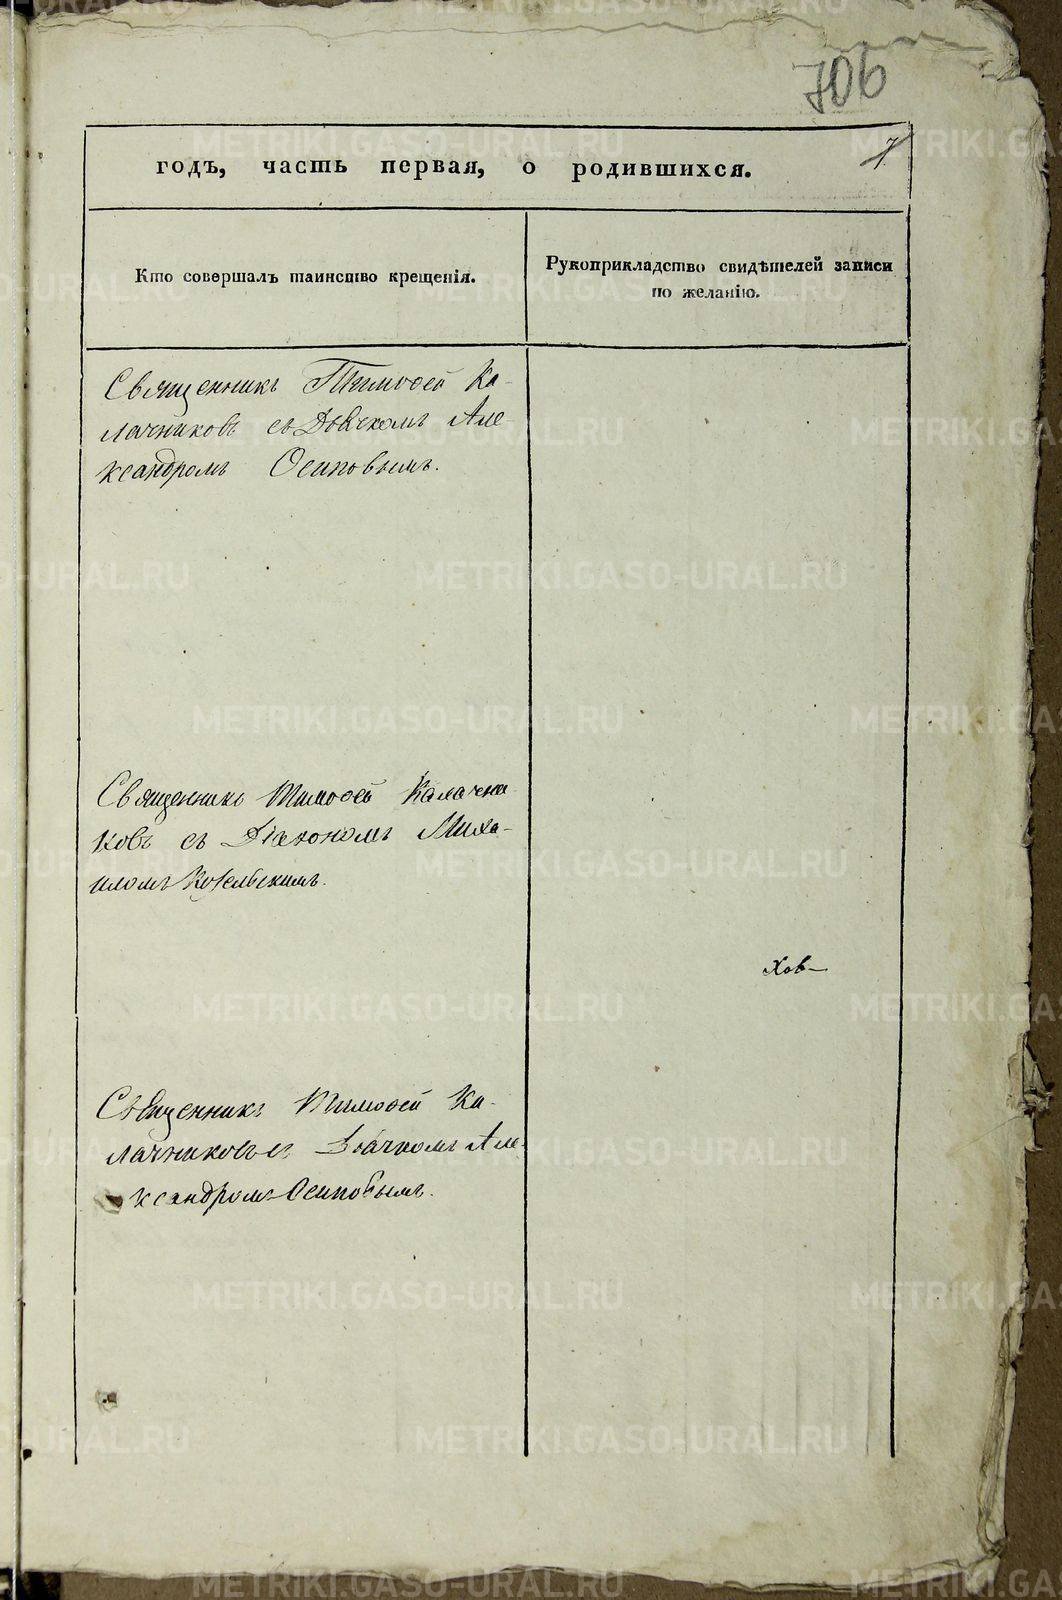 706
7
годъ, часть первая, о родившихся.
Кто совершалъ таинство крещенія.
Рукоприкладство свидѣтелей записи
по желанію.
Священникъ Тимофей Ка-
лачниковъ съ Дьячкомъ Але-
ксандромъ Осиповымъ.
Священникъ Тимофей Калачни
ковъ съ Діакономъ Миха-
иломъ Козельскимъ.
Хов-
Священникъ Тимофей Ка-
лачниковъ съ Дьячкомъ Але-
ксандромъ Осиповымъ.
METRIKI.GASO-URAL.RU